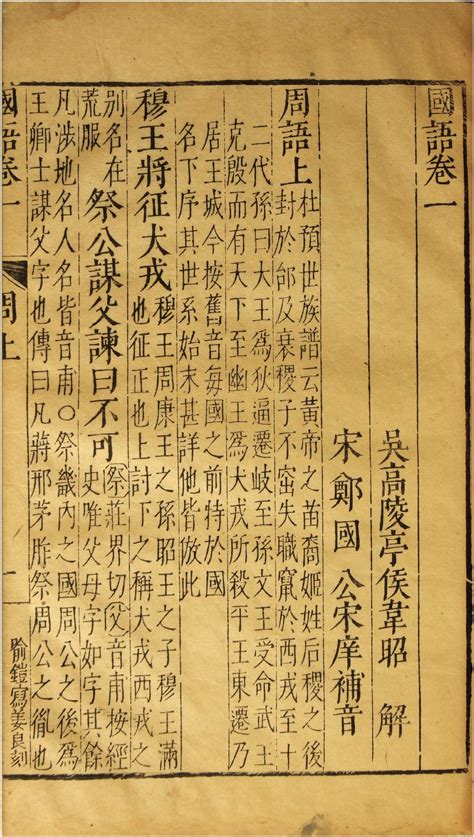 國語卷一
吳高陵亭侯韋昭 解
宋鄭國 公宋庠補音
周語上
杜預世族譜云黃帝之苗裔姬姓后稷之後
封於邰及衰稷子不窋失職竄於西戎至十
二代孫曰大王爲狄逼遷岐至孫文王受命武王
克殷而有天下至幽王爲犬戎所殺平王東遷乃
居王城今按舊音每國之前特於國
名下序其世系始末甚詳他皆倣此
穆王將征犬戎
穆王周康王之孫昭王之子穆王滿
也征正也上討下之稱犬戎西戎之
別名在
荒服
祭公謀父諫曰不可
祭莊界切父音甫按經
史唯父母字如字其餘
凡涉地名人名皆音甫○祭畿內之國周公之後爲
王卿士謀父字也傳曰凡蔣邢茅胙祭周公之胤也
國語卷一
周上
喻鎧寫姜良刻